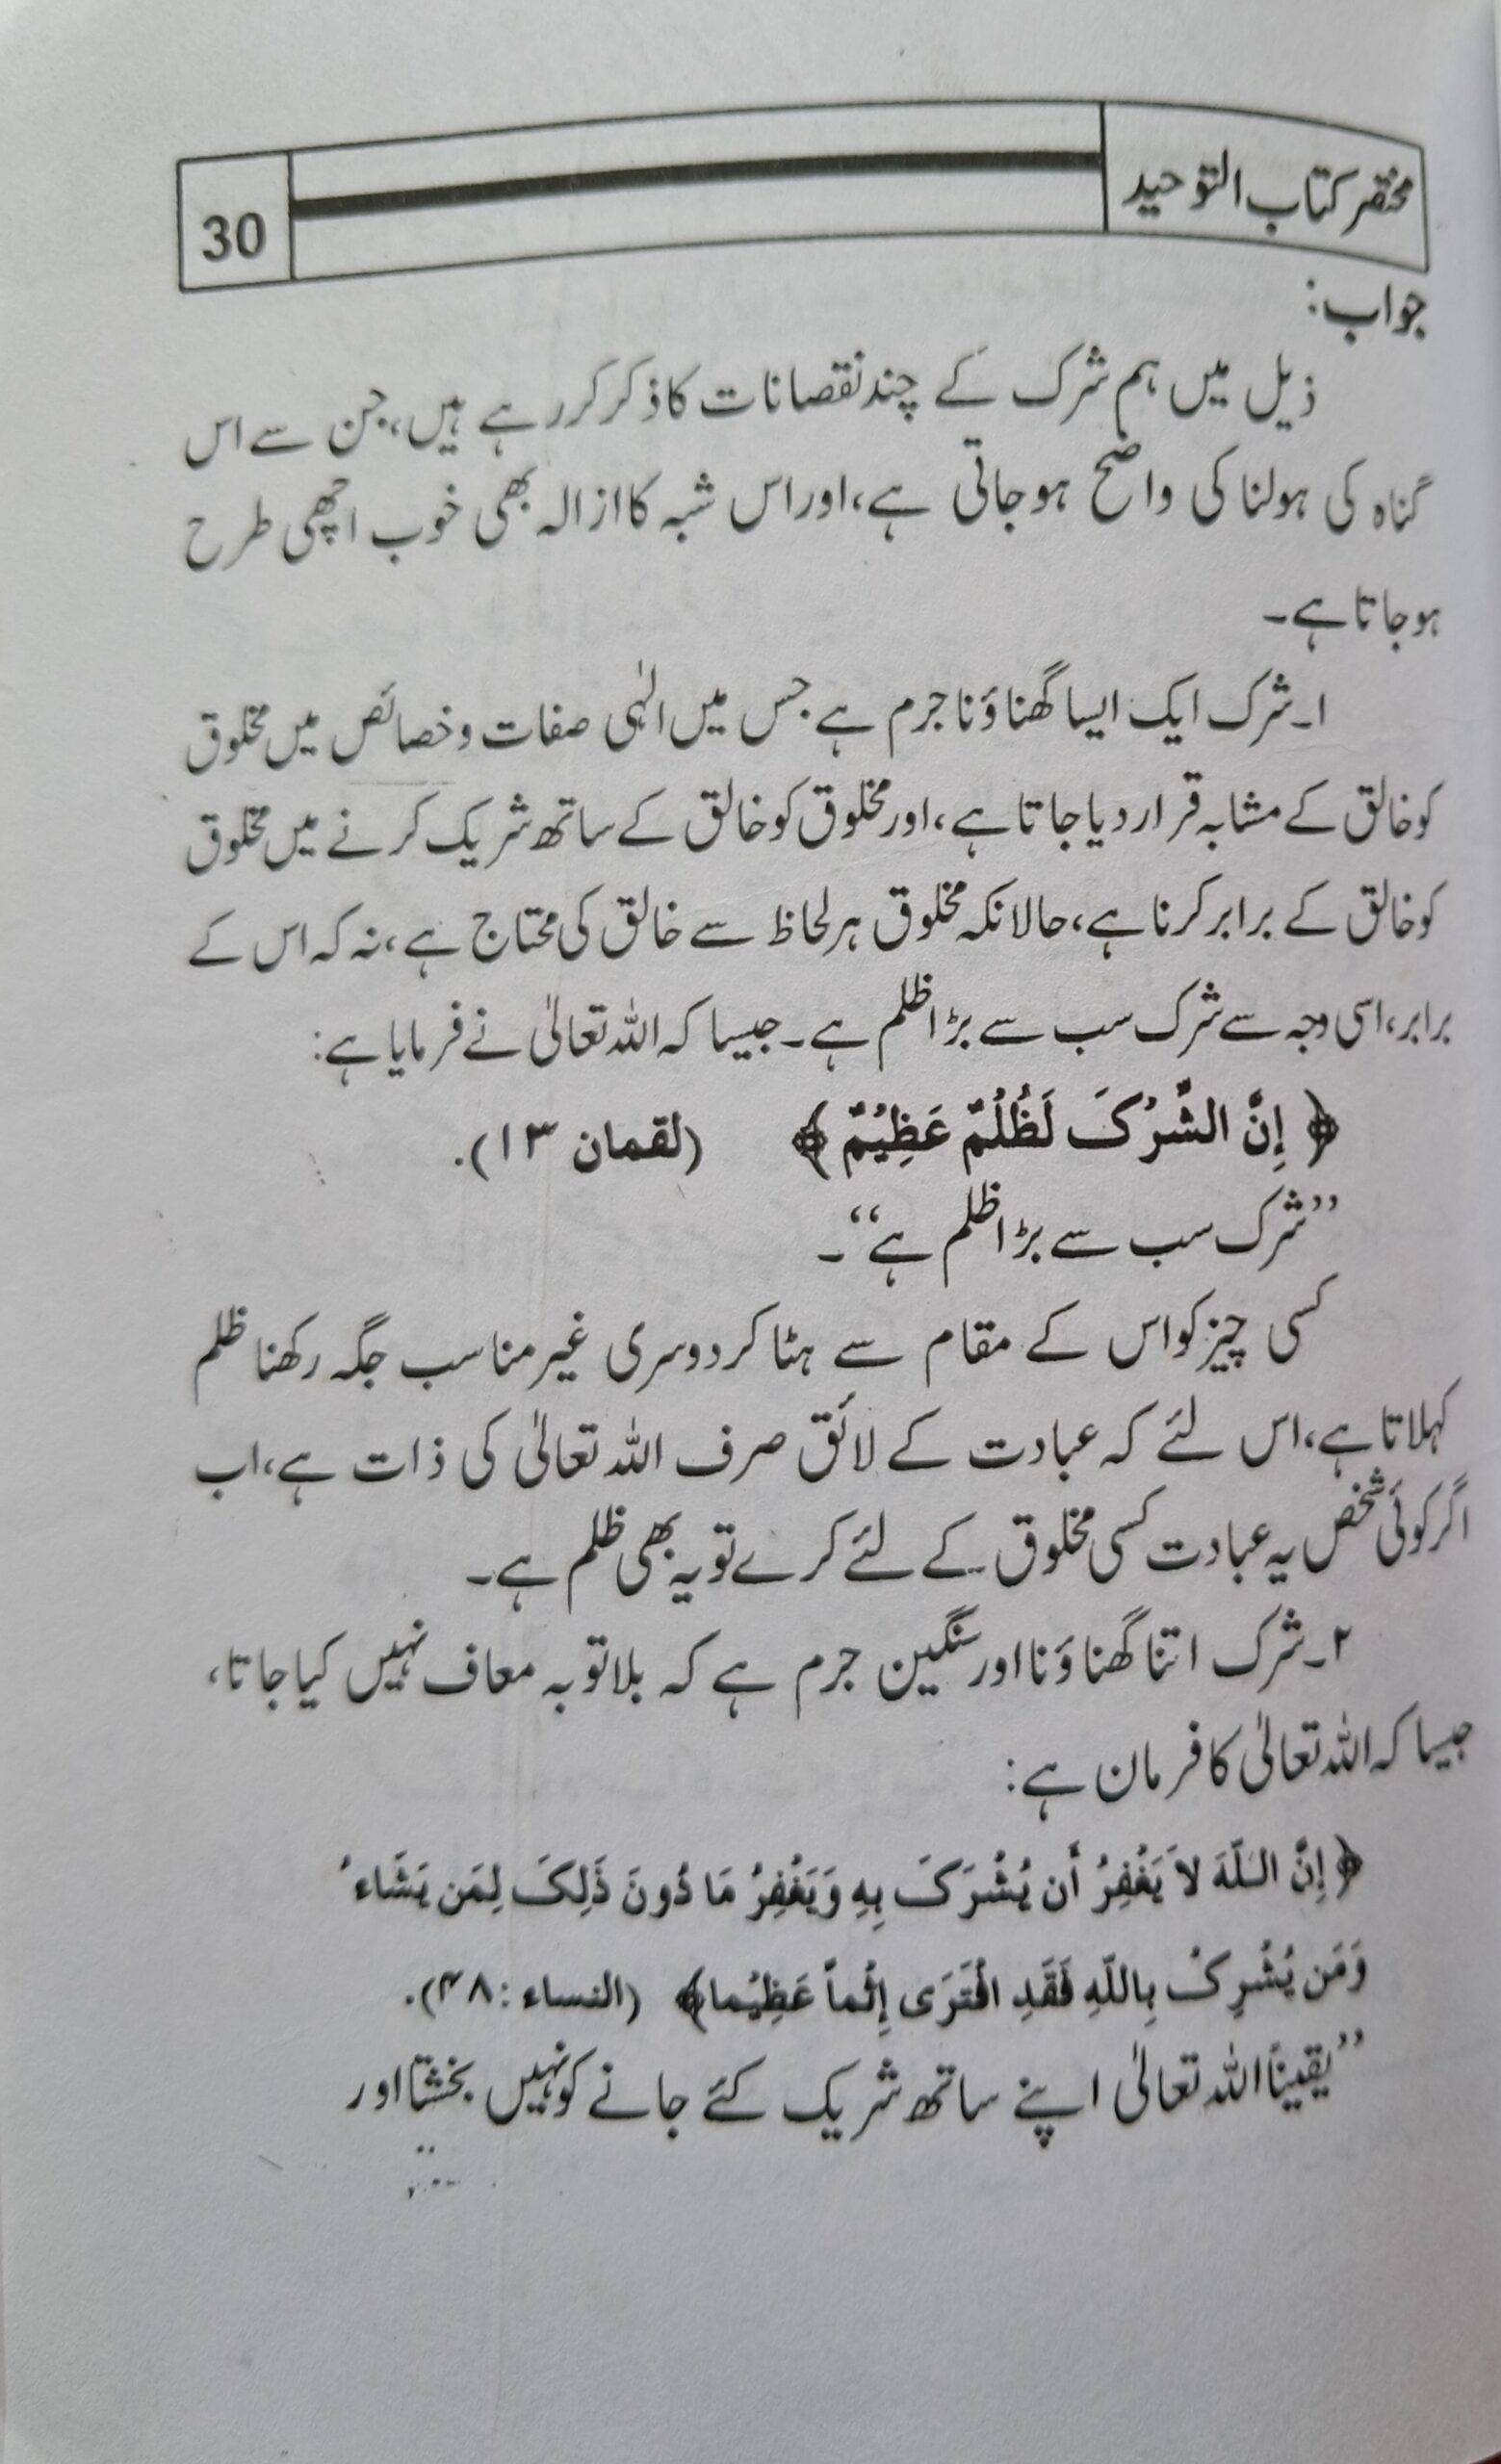 مختصر کتاب التوحید
30
جواب:
ذیل میں ہم شرک کے چند نقصانات کا ذکر کر رہے ہیں، جن سے اس
گناہ کی ہولناکی واضح ہو جاتی ہے، اور اس شبہ کا ازالہ بھی خوب اچھی طرح
ہو جاتا ہے۔
۱۔ شرک ایک ایسا گھناؤنا جرم ہے جس میں الٰہی صفات و خصائص میں مخلوق
کو خالق کے مشابہ قرار دیا جاتا ہے، اور مخلوق کو خالق کے ساتھ شریک کرنے میں مخلوق
کو خالق کے برابر کرنا ہے، حالانکہ مخلوق ہر لحاظ سے خالق کی محتاج ہے، نہ کہ اس کے
برابر، اسی وجہ سے شرک سب سے بڑا ظلم ہے۔ جیسا کہ اللہ تعالیٰ نے فرمایا ہے:
﴿ إِنَّ الشِّرْكَ لَظُلْمٌ عَظِيْمٌ ﴾ (لقمان ۱۳).
’’شرک سب سے بڑا ظلم ہے‘‘۔
کسی چیز کو اس کے مقام سے ہٹا کر دوسری غیر مناسب جگہ رکھنا ظلم
کہلاتا ہے، اس لئے کہ عبادت کے لائق صرف اللہ تعالیٰ کی ذات ہے، اب
اگر کوئی شخص یہ عبادت کسی مخلوق کے لئے کرے تو یہ بھی ظلم ہے۔
۲۔ شرک اتنا گھناؤنا اور سنگین جرم ہے کہ بلا توبہ معاف نہیں کیا جاتا،
جیسا کہ اللہ تعالیٰ کا فرمان ہے:
﴿ إِنَّ اللّهَ لاَ يَغْفِرُ أَن يُشْرَكَ بِهِ وَيَغْفِرُ مَا دُونَ ذَلِكَ لِمَن يَشَاءُ
وَمَن يُشْرِكْ بِاللّهِ فَقَدِ افْتَرَى إِثْماً عَظِيْما﴾ (النساء: ۴۸).
’’یقیناً اللہ تعالیٰ اپنے ساتھ شریک کئے جانے کو نہیں بخشتا اور